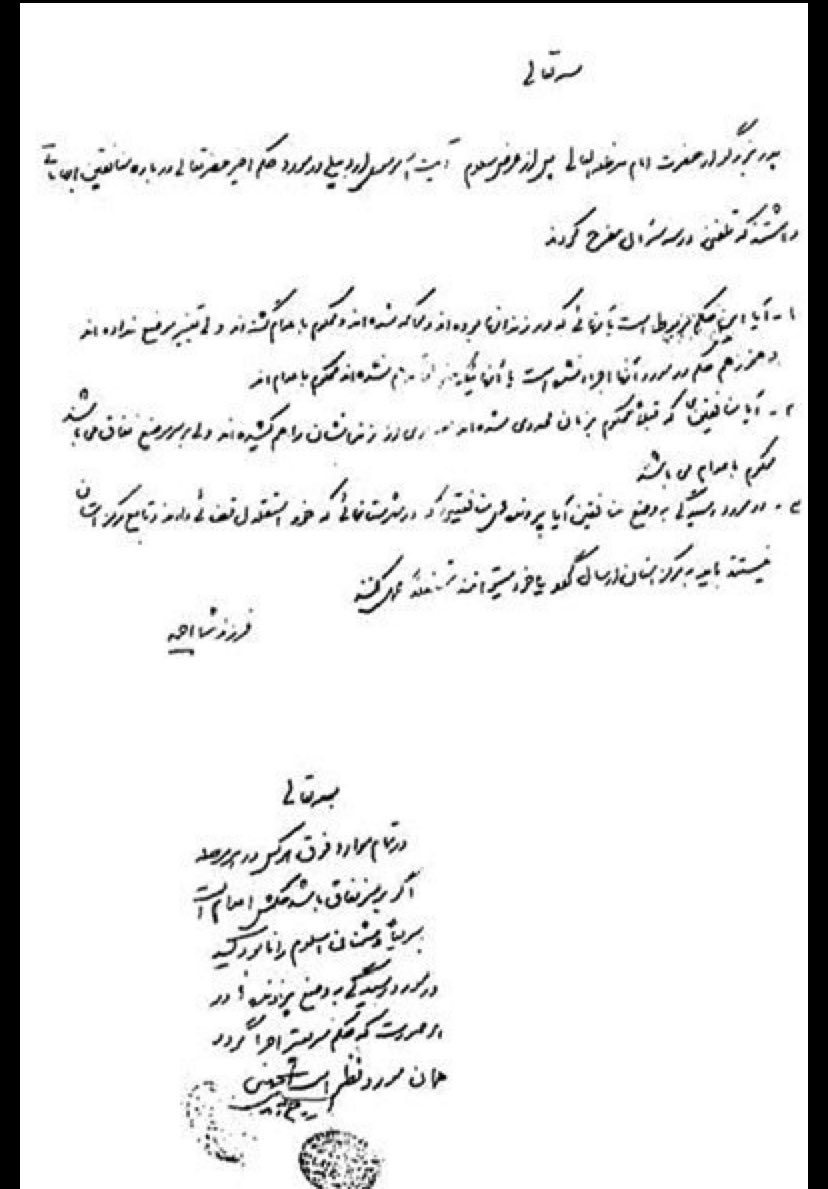 بسمه تعالی
پدر بزرگوار حضرت امام مدظله العالی پس از عرض سلام آیت الله موسوی اردبیلی در مورد حکم اخیر حضرتعالی درباره منافقین ابهاماتی
داشته‌اند که تلفنی در سه سؤال مطرح کردند
۱- آیا این حکم مربوط است به آنهائی که در زندانها بوده‌اند و محاکمه شده‌اند و محکوم به اعدام گشته‌اند ولی تغییر موضع نداده‌اند
و هنوز هم حکم در مورد آنها اجرا نشده است یا آنهائیکه حتی محاکمه هم نشده‌اند محکوم به اعدامند
۲- آیا منافقینی که قبلاً محکوم به زندان محدود شده‌اند و مقداری از زندانشان را هم کشیده‌اند ولی بر سر موضع نفاق می‌باشند
محکوم به اعدام می‌باشند
۳- در مورد رسیدگی به وضع منافقین آیا پرونده‌های منافقینی که در شهرستانهائی که خود استقلال قضائی دارند و تابع مرکز استان
نیستند باید به مرکز استان ارسال گردد یا خود میتوانند مستقلاً عمل کنند
فرزند شما احمد
بسمه تعالی
در تمام موارد فوق هر کس در هر مرحله
اگر بر سر نفاق باشد حکمش اعدام است
سریعاً دشمنان اسلام را نابود کنید
در مورد رسیدگی به وضع پرونده‌ها در
هر صورت که حکم سریعتر اجرا گردد
همان مورد نظر است
روح الله الموسوی الخمینی